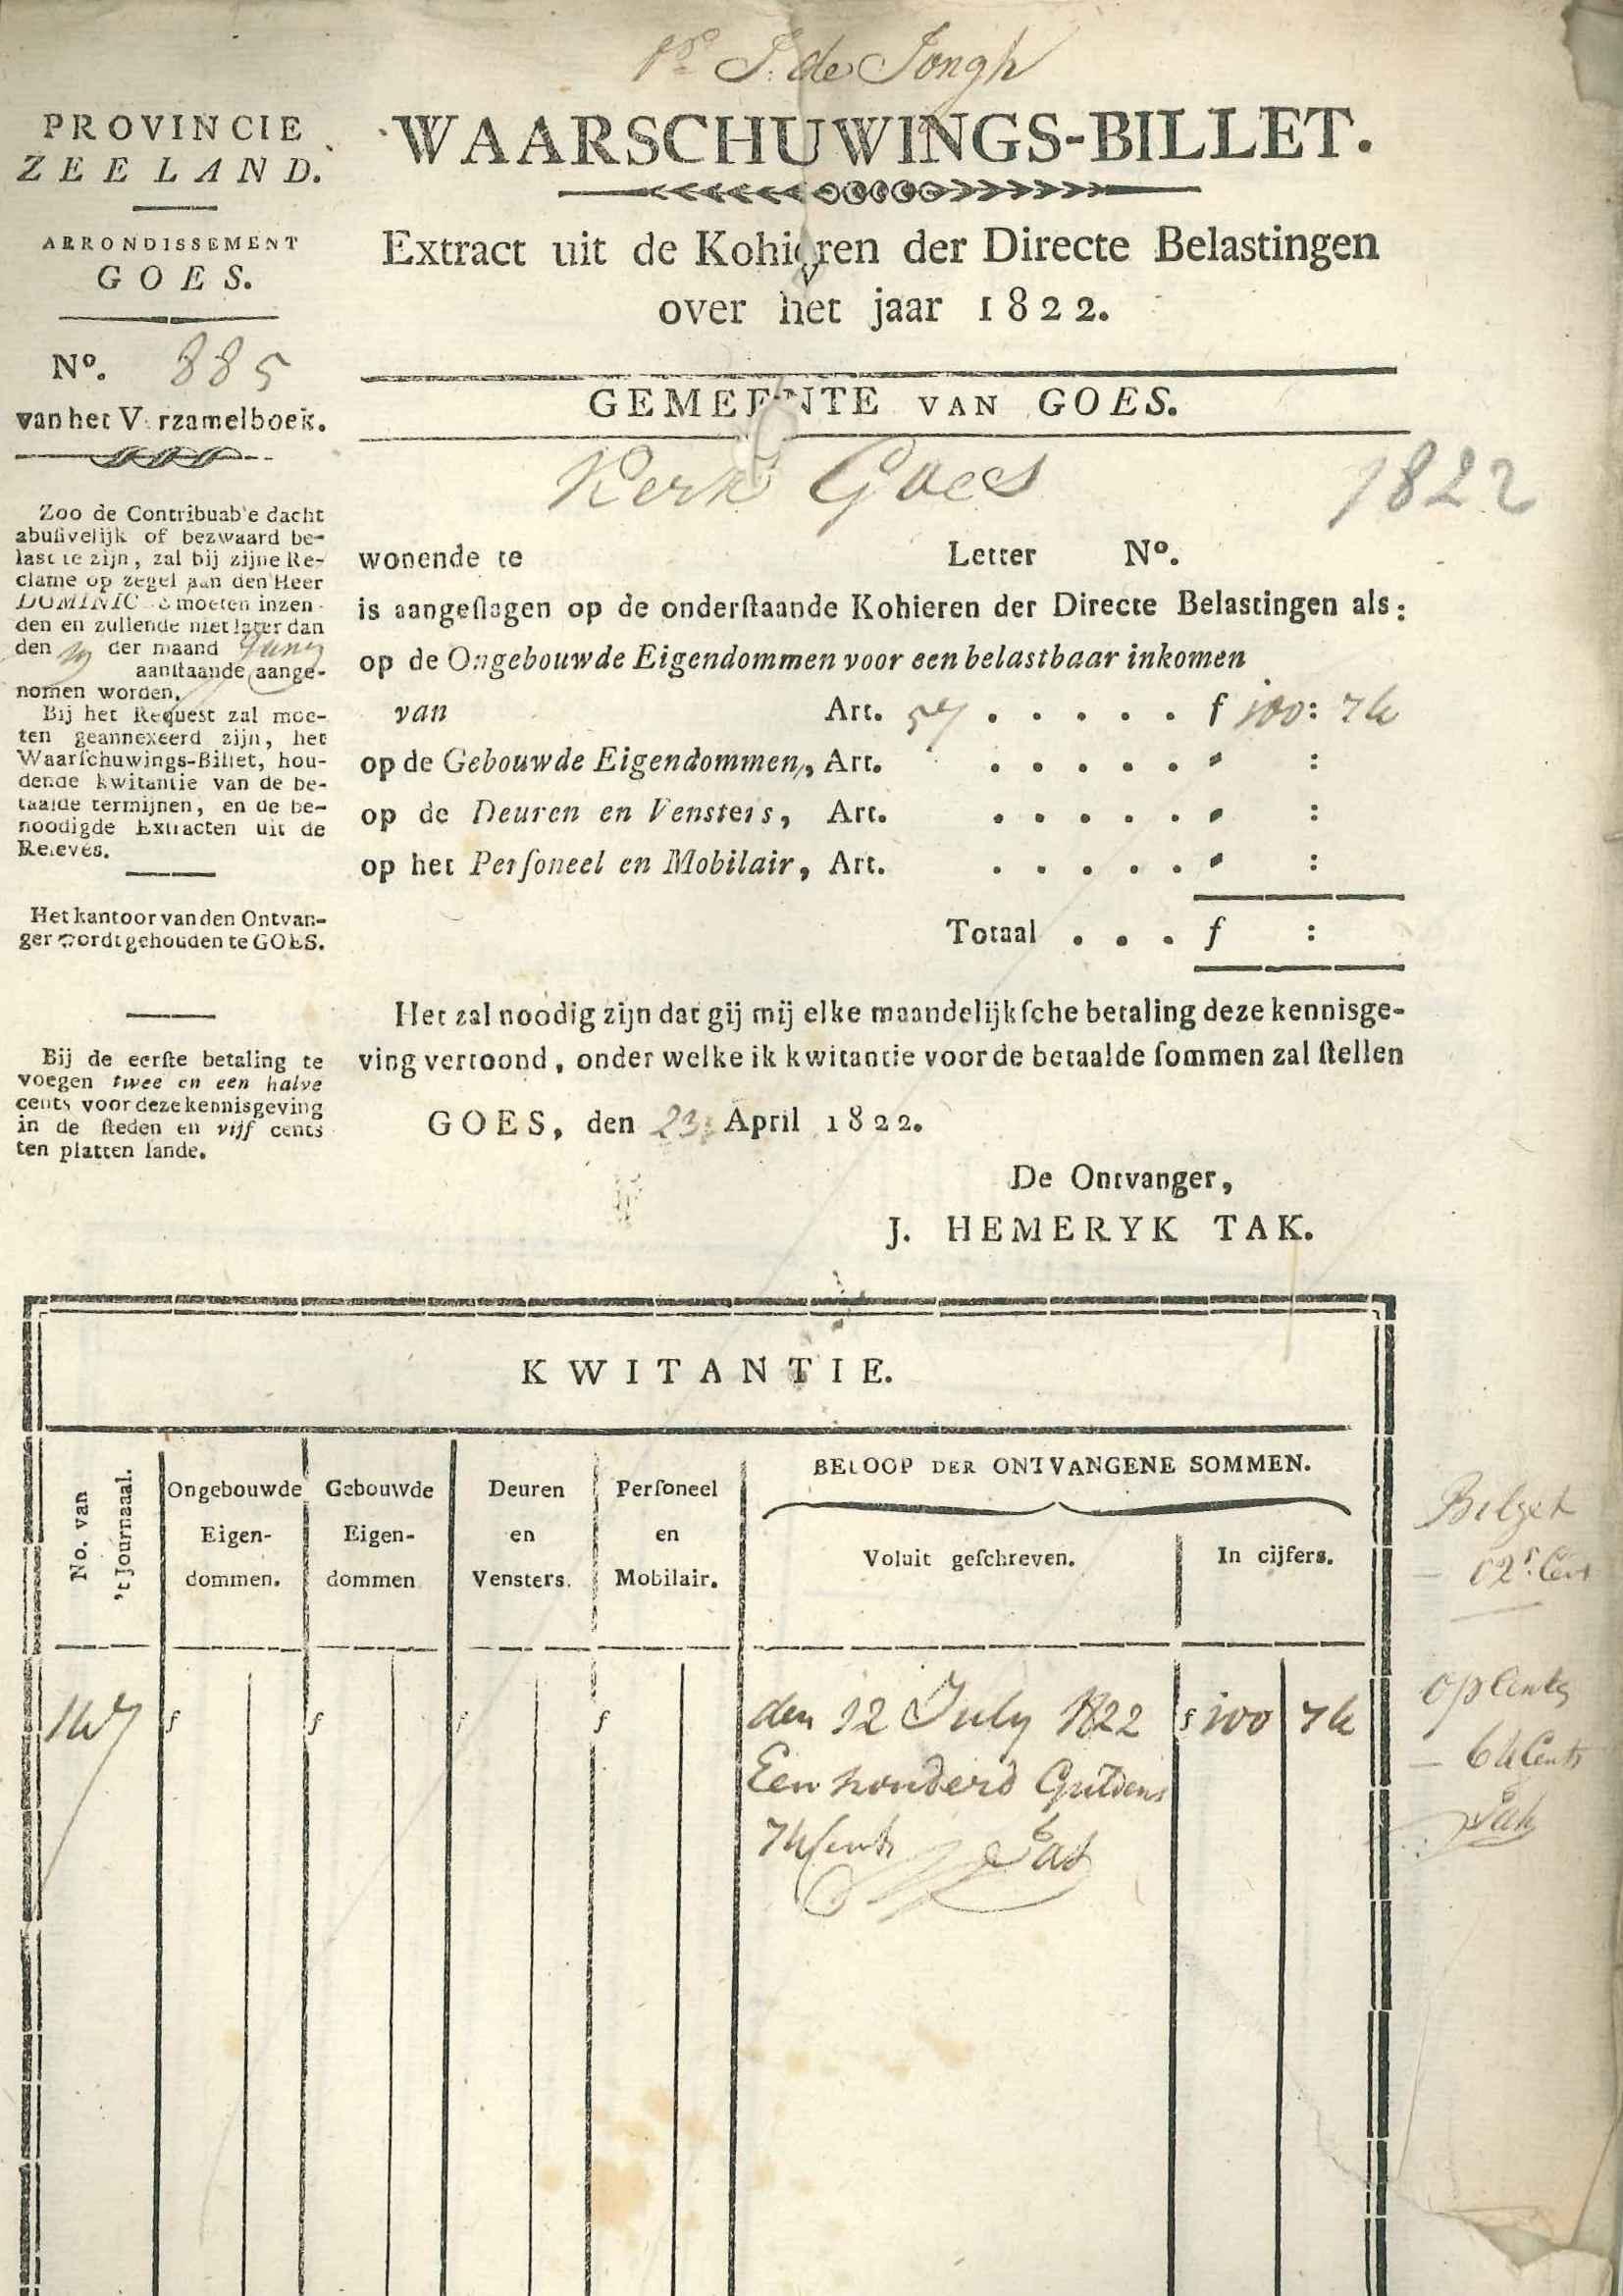 J. de Jongh
PROVINCIE
ZEELAND.
ARRONDISSEMENT
GOES.
Nº. 885
van het V rzamelboek.
Zoo de Contribuab'e dacht
abuſivelijk of bezwaard be-
last te zijn, zal bij zijne Re-
clame op zegel aan den Heer
DOMINIC moeten inzen-
den en zullende niet later dan
den der maand Juny
aanſtaande aange-
nomen worden.
Bij het Request zal moe-
ten geannexeerd zijn, het
Waarſchuwings-Billet, hou-
dende kwitantie van de be-
taalde termijnen, en de be-
noodigde Extracten uit de
Releves.
Het kantoor van den Ontvan-
ger wordt gehouden te GOES.
Bij de eerſte betaling te
voegen twee en een halve
cents voor deze kennisgeving
in de ſteden en vijf cents
ten platten lande.
WAARSCHUWINGS-BILLET.
Extract uit de Kohieren der Directe Belastingen
over het jaar 1822.
GEMEENTE VAN GOES.
Kerk Goes 1822
wonende te Letter Nº.
is aangeſlagen op de onderſtaande Kohieren der Directe Belastingen als:
op de Ongebouwde Eigendommen voor een belastbaar inkomen
van Art. 57 . . . . . f 100: 74
op de Gebouwde Eigendommen, Art. . . . . . " :
op de Deuren en Vensters, Art. . . . . . " :
op het Perſoneel en Mobilair, Art. . . . . . " :
Totaal . . . f :
Het zal noodig zijn dat gij mij elke maandelijkſche betaling deze kennisge-
ving vertoond, onder welke ik kwitantie voor de betaalde ſommen zal ſtellen
GOES, den 23 April 1822.
De Ontvanger,
J. HEMERYK TAK.
KWITANTIE.
No. van
't Journaaal.
Ongebouwde
Eigen-
dommen.
Gebouwde
Eigen-
dommen
Deuren
en
Vensters.
Perſoneel
en
Mobilair.
BELOOP DER ONTVANGENE SOMMEN.
Voluit geſchreven.
In cijfers.
147 f f f f den 12 July 1822 f 100 74
Een honderd Guldens
74 Cents Tak
Belzet
02⁵ Cent
opcents
— 64 Cents
Tak